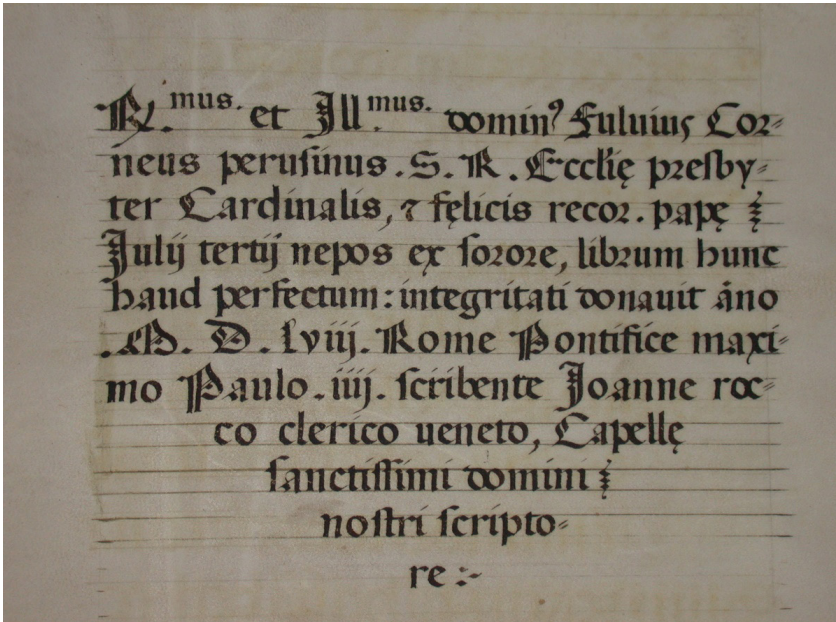 R.mus. et Ill.mus. dominꝰ Fuluius Cor-
neus peruſinus. S. R. Eccłię preſby-
ter Cardinalis, ⁊ fęlicis recor. papę
Julij tertij nepos ex ſorore, librum hunc
haud perfectum: integritati donauit āno
.M. D. lviij. Rome Pontifice maxi-
mo Paulo .iiij. ſcribente Joanne roc-
co clerico ueneto, Capellę
ſanctiſſimi domini
noſtri ſcripto-
re :-